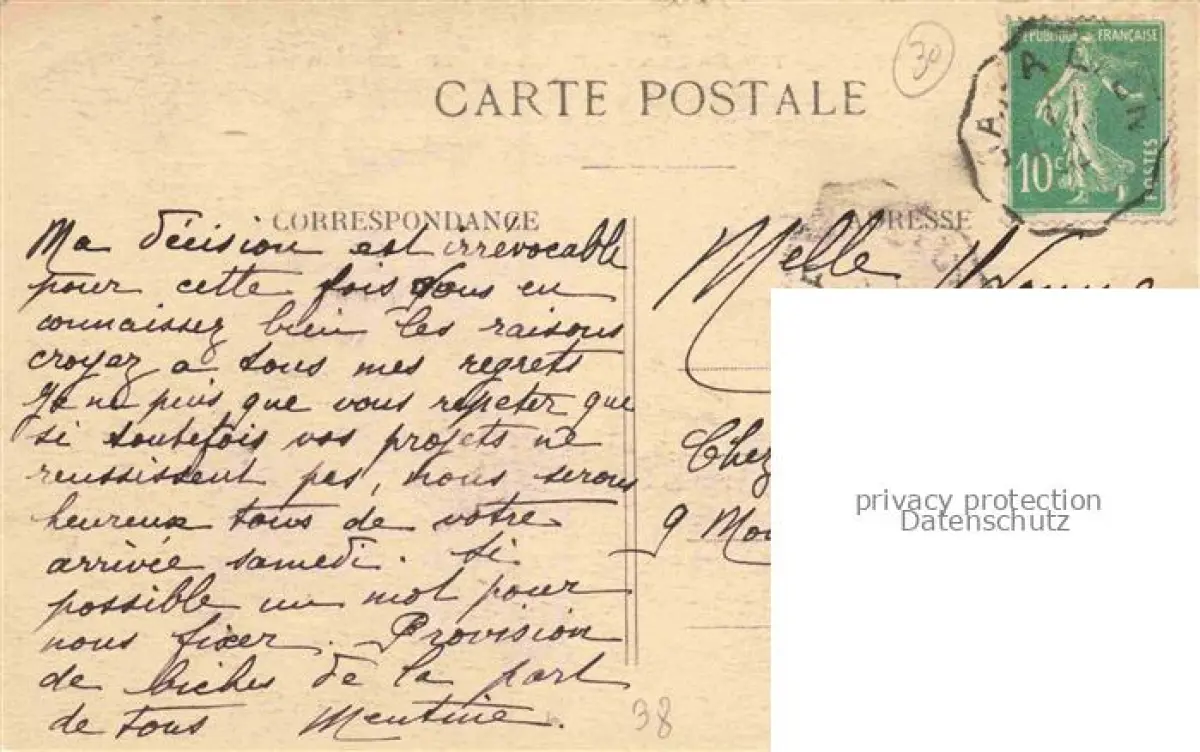 30
RÉPUBLIQUE FRANÇAISE
10c
POSTES
CARTE POSTALE
CORRESPONDANCE
Ma décision est irrévocable
pour cette fois Vous en
connaissez bien les raisons
croyez a tous mes regrets
Je ne puis que vous repeter que
si toutefois vos projets ne
reussissent pas, nous serons
heureux tous de votre
arrivée samedi. Si
possible un mot pour
nous fixer. Provision
de biches de la part
de tous Mentine.
38
ADRESSE
Melle
Chez
9
privacy protection
Datenschutz